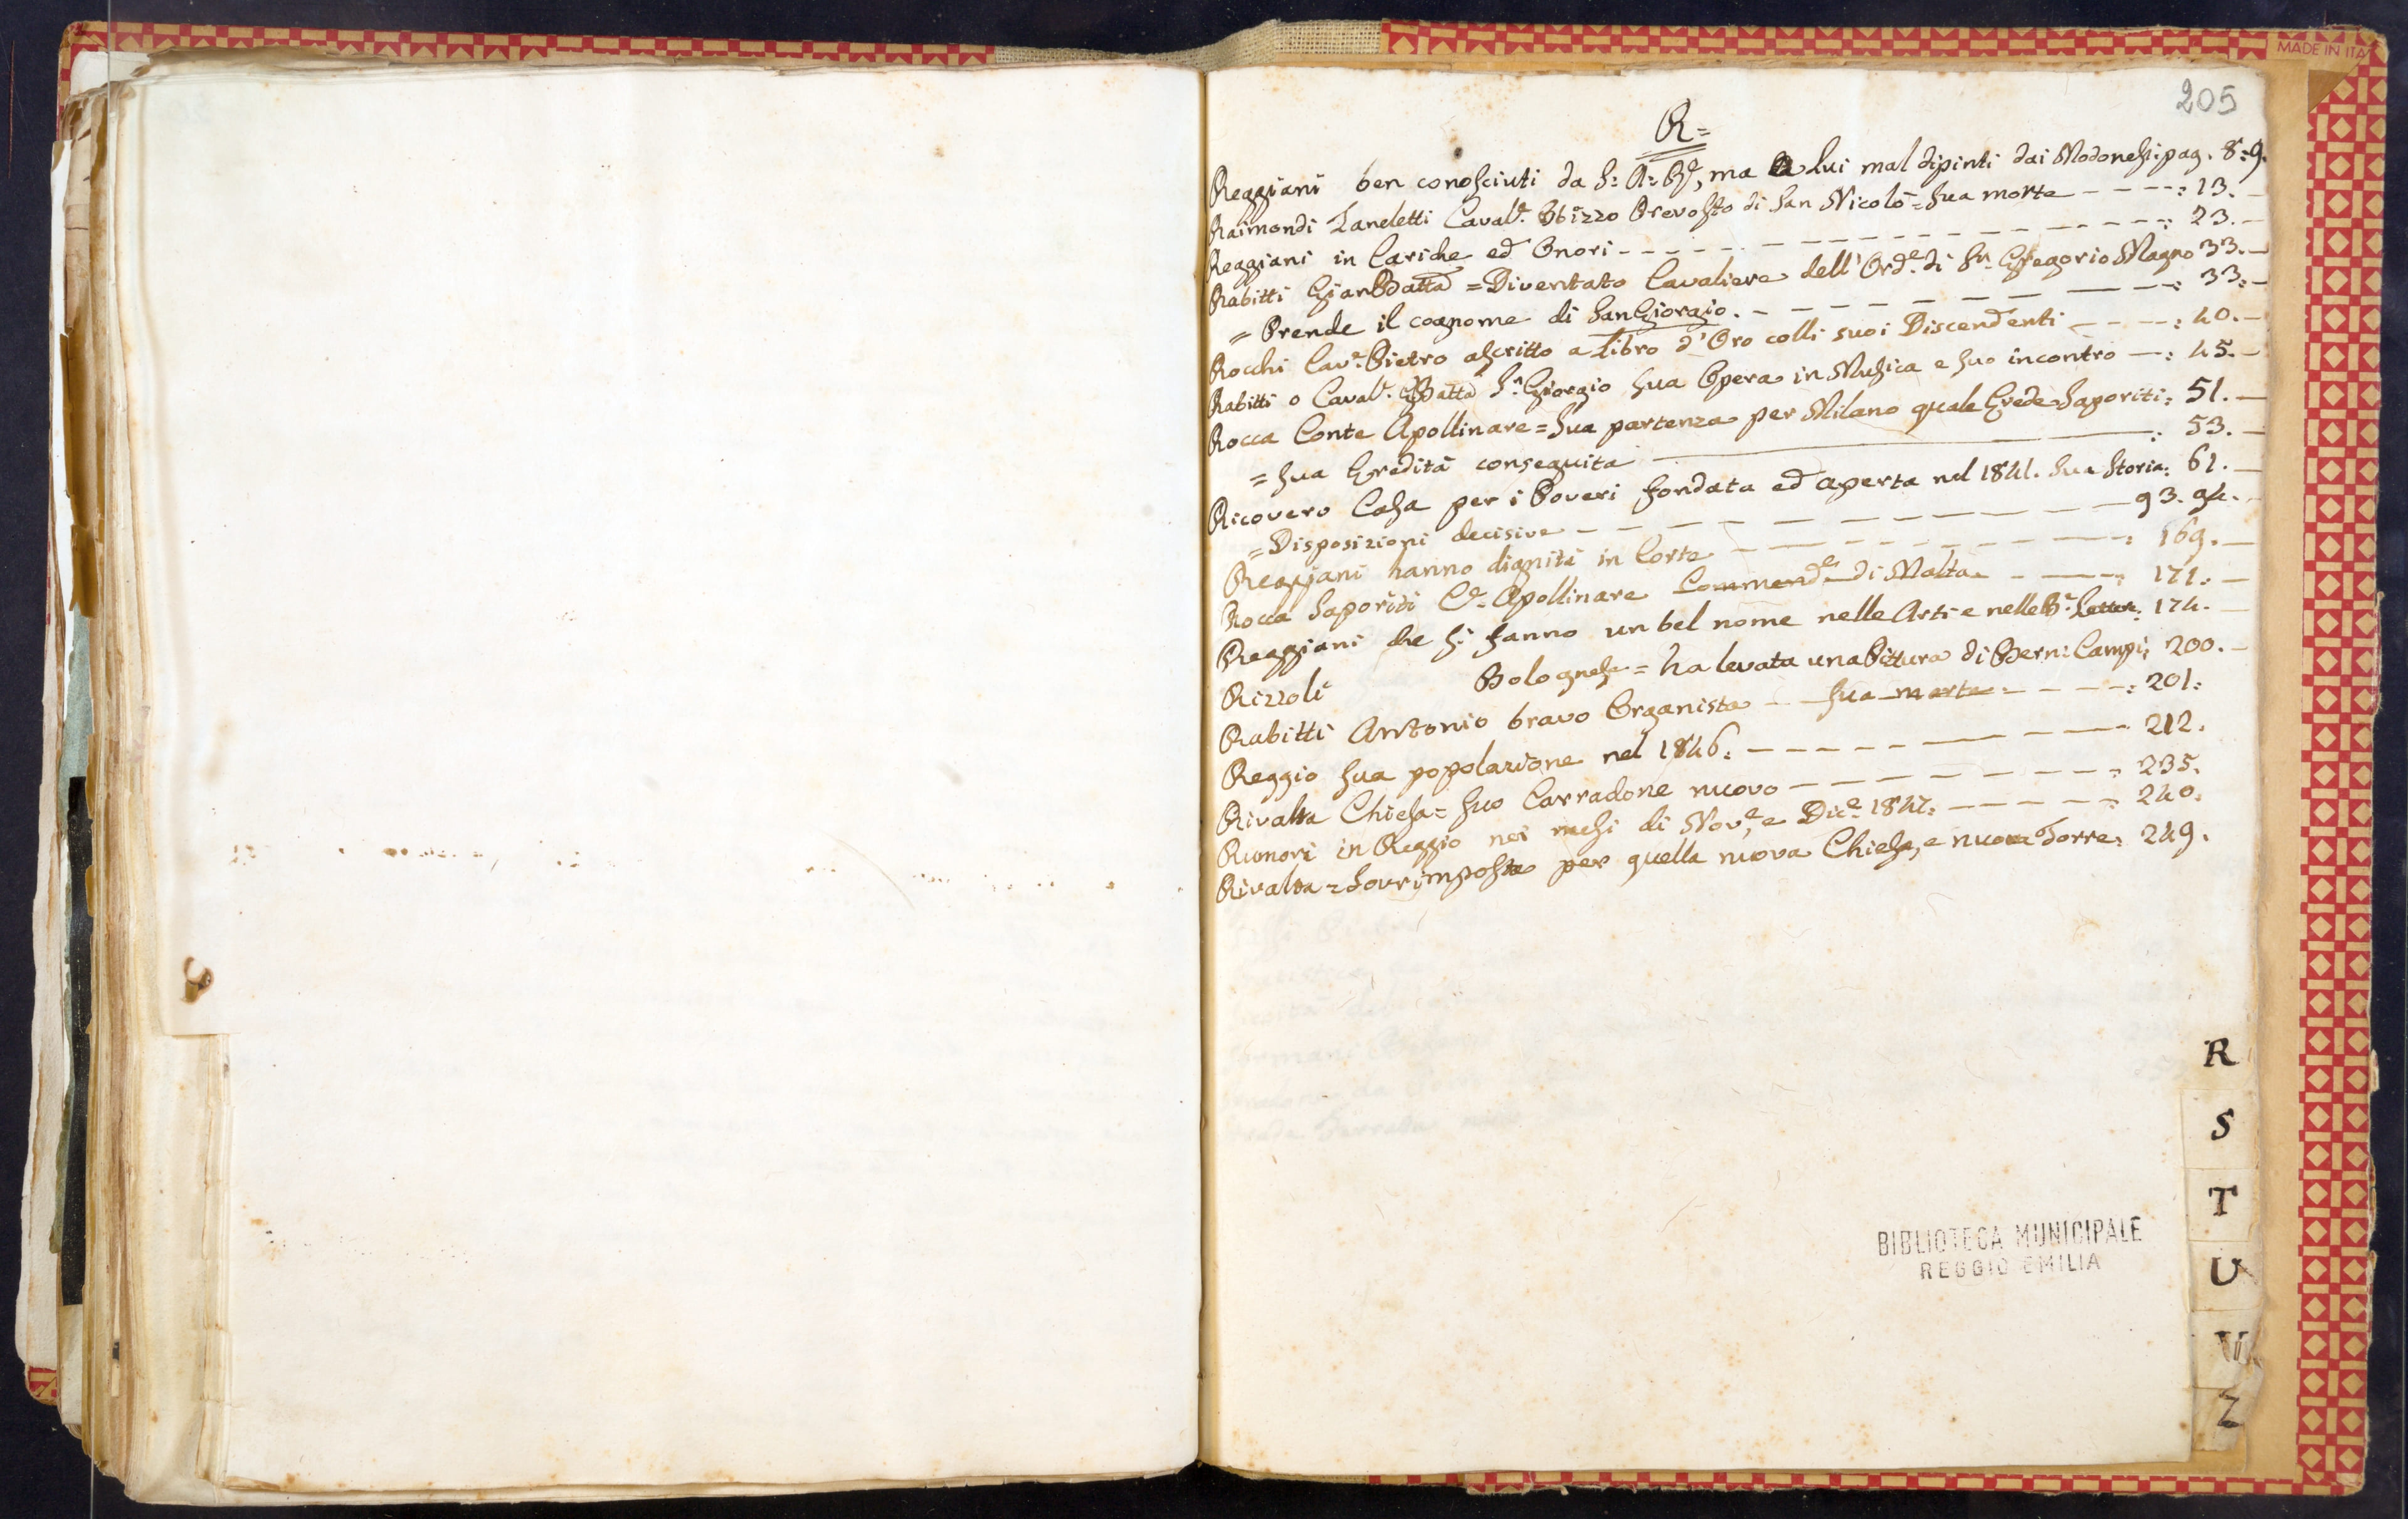 MADE IN ITA
205
R =
Reggiani ben conosciuti da S: A: Rˡᵉ, ma a lui mal dipinti dai Modonesi: pag. 8:9.
Raimondi Zaneletti Caval.ᵉ Obizzo Prevosto di San Nicolò = Sua morte - - - -: 13. -
Reggiani in Cariche ed Onori - - - - - - - - - - - - - - -: 23. -
Rabitti GianBatta = Diventato Cavaliere dell'Ord.ᵉ di S.ⁿ Gregorio Magno 33. -
= Prende il cognome di SanGiorgio. - - - - - - - - -: 33: -
Rocchi Cav.ᵉ Pietro ascritto a Libro d'Oro colli suoi Discendenti - - - -: 40. -
Rabitti o Caval.ᵉ GBatta S.ⁿ Giorgio sua Opera in Musica e suo incontro -: 45. -
Rocca Conte Apollinare = Sua partenza per Milano quale Erede Saporiti: 51. -
= Sua Eredità conseguita -: 53. -
Ricovero Casa per i Poveri fondata ed aperta nel 1841. Sua Storia: 61. -
= Disposizioni decisive - - - - - - - - - - 93. 94. -
Reggiani hanno dignità in Corte - - - - - - - - -: 169. -
Rocca Saporiti C.ᵉ Apollinare Commend.ᵉ di Malta - - - -: 171: -
Reggiani che si fanno un bel nome nelle Arti e nelle B.ᵉ Letter: 174. -
Rizzoli Bolognese = ha levata una Pittura di Bern: Campi: 200. -
Rabitti Antonio bravo Organista - Sua morte - - - - -: 201:
Reggio sua popolazione nel 1846: - - - - - - - - - 212.
Rivalta Chiesa = Suo Carradone nuovo - - - - - - - -: 235.
Rumori in Reggio nei mesi di Nov.ᵉ, e Dic.ᵉ 1847: - - - - -: 240.
Rivalta = Sovrimposta per quella nuova Chiesa, e nuova Torre: 249.
R
S
T
U
V
Z
BIBLIOTECA MUNICIPALE
REGGIO EMILIA